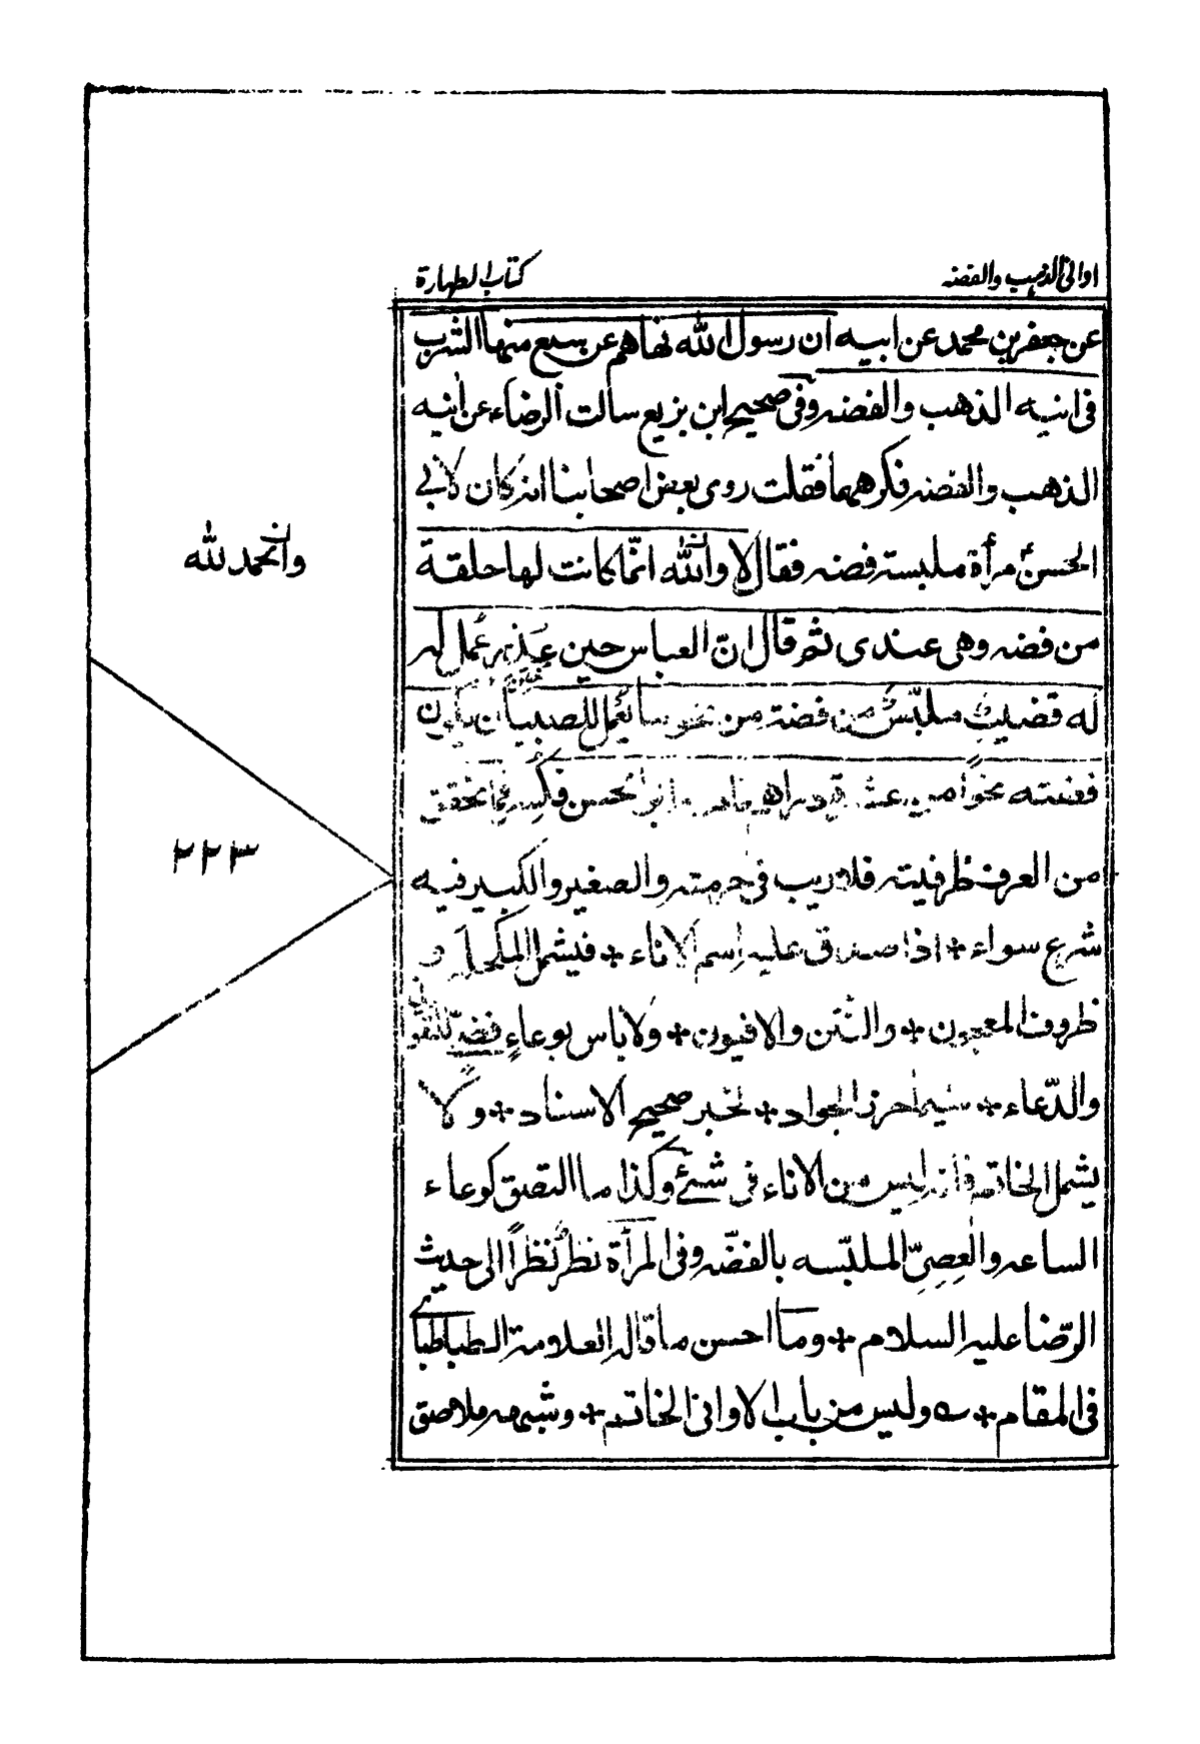 اوانى الذهب والفضه
كتاب الطهارة
عن جعفر بن محمد عن ابيه ان رسول الله نهاهم عن سبع منها الشرب
فى انيه الذهب والفضه وفى صحيح ابن بزيع سالت الرضاء عن انيه
الذهب والفضه فكرههما فقلت روى بعض اصحابنا انه كان لابى
الحسنؑ مرأة ملبسته فضه فقال لا والله انّما كانت لها حلقة
من فضه وهى عندى ثم قال انّ العباس حين عُذِر عُمل له
له قضيبٌ ملبّسٌ من فضة من نحو ما يُعمل للصبيان يكون
ففنته نحواً من عشرة دراهم فامر به ابو الحسن فكُسر فما تحقق
من العرف ظرفيته فلا ريب فى حرمته والصغير والكبير فيه
شرع سواء + اذا صدق عليه اسم الاناء + فيشمل المكحلة و
ظروف المعجون + والتتن والافيون + ولا باس بوعاءِ فضةٍ
والدّعاء + سيما حرز الجواد + لخبر صحيح الاسناد + ولا
يشمل الخاتم فانه ليس من الاناء فى شئ وكذا ما التصق كوعاء
الساعه والعِصِىّ الملبّسه بالفضّه وفى المرأة نظرٌ نظراً الى حديث
الرّضا عليه السلام + وما احسن ما قاله العلامة الطباطبائى
فى المقام + وليس من باب الاوانى الخاتم + وشبهه ملاصق
والحمد لله
٢٢٣